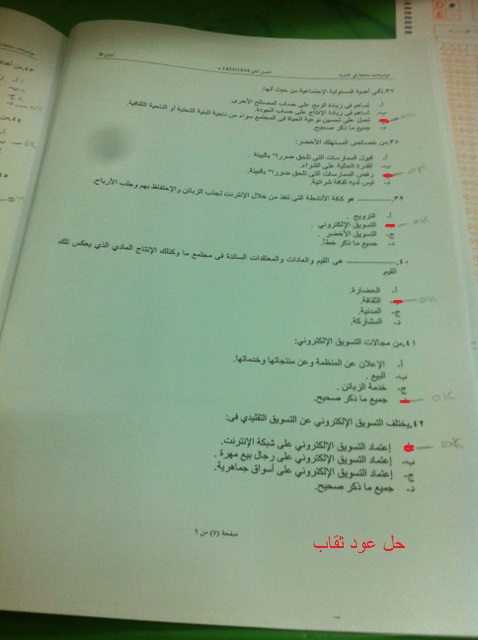 ٣٧.تأتي أهمية المسئولية الإجتماعية من حيث أنها:
أ- تساهم في زيادة الربح على حساب المصالح الأخرى.
ب- تساهم في زيادة الإنتاج على حساب الجودة.
تعمل على تحسين نوعية الحياة في المجتمع سواء من ناحية البنية التحتية أو الناحية الثقافية.
د- جميع ما ذكر صحيح.
٣٨.من خصائص المستهلك الأخضر:
أ- قبول الممارسات التي تلحق ضررا" بالبيئة .
ب- القدرة العالية على الشراء.
رفض الممارسات التي تلحق ضررا" بالبيئة.
د- ليس لديه ثقافة شرائية.
٣٩. ............ هو كافة الأنشطة التي تنفذ من خلال الإنترنت لجذب الزبائن والإحتفاظ بهم وجلب الأرباح.
أ- الترويج .
التسويق الإلكتروني . OK
ج- التسويق الأخضر .
د- جميع ما ذكر خطأ.
٤٠. ............ هي القيم والعادات والمعتقدات السائدة في مجتمع ما وكذلك الإنتاج المادي الذي يعكس تلك
القيم.
أ- الحضارة.
الثقافة. OK
ج- المدنية.
د- المشاركة.
٤١.من مجالات التسويق الإلكتروني:
أ- الإعلان عن المنظمة وعن منتجاتها وخدماتها.
ب- البيع .
ج- خدمة الزبائن .
جميع ما ذكر صحيح. OK
٤٢.يختلف التسويق الإلكتروني عن التسويق التقليدي في:
إعتماد التسويق الإلكتروني على شبكة الإنترنت. OK
ب- إعتماد التسويق الإلكتروني على رجال بيع مهرة .
ج- إعتماد التسويق الإلكتروني على أسواق جماهرية.
د- جميع ما ذكر صحيح.
صفحة (٧) من ٩
حل عود ثقاب